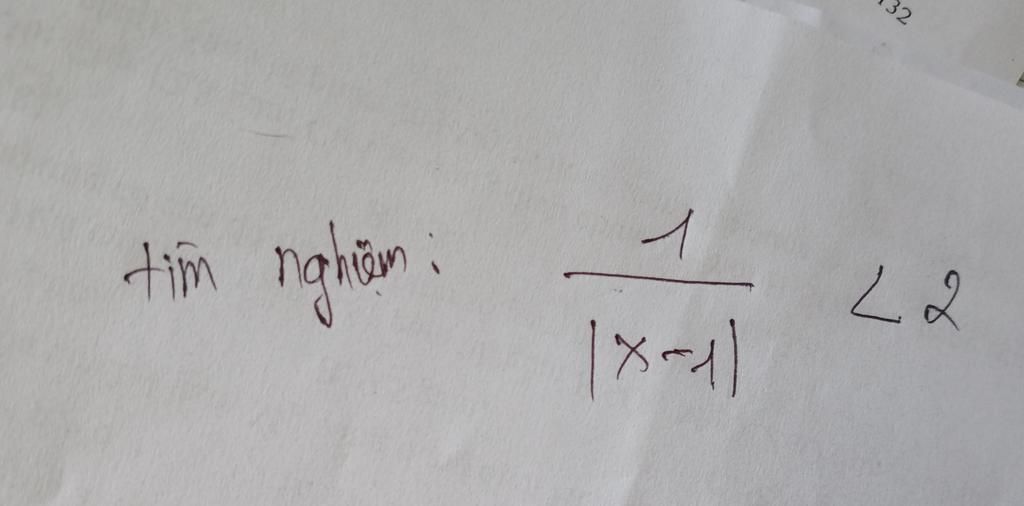 132
tìm nghiệm: \frac{1}{|x-1|} < 2